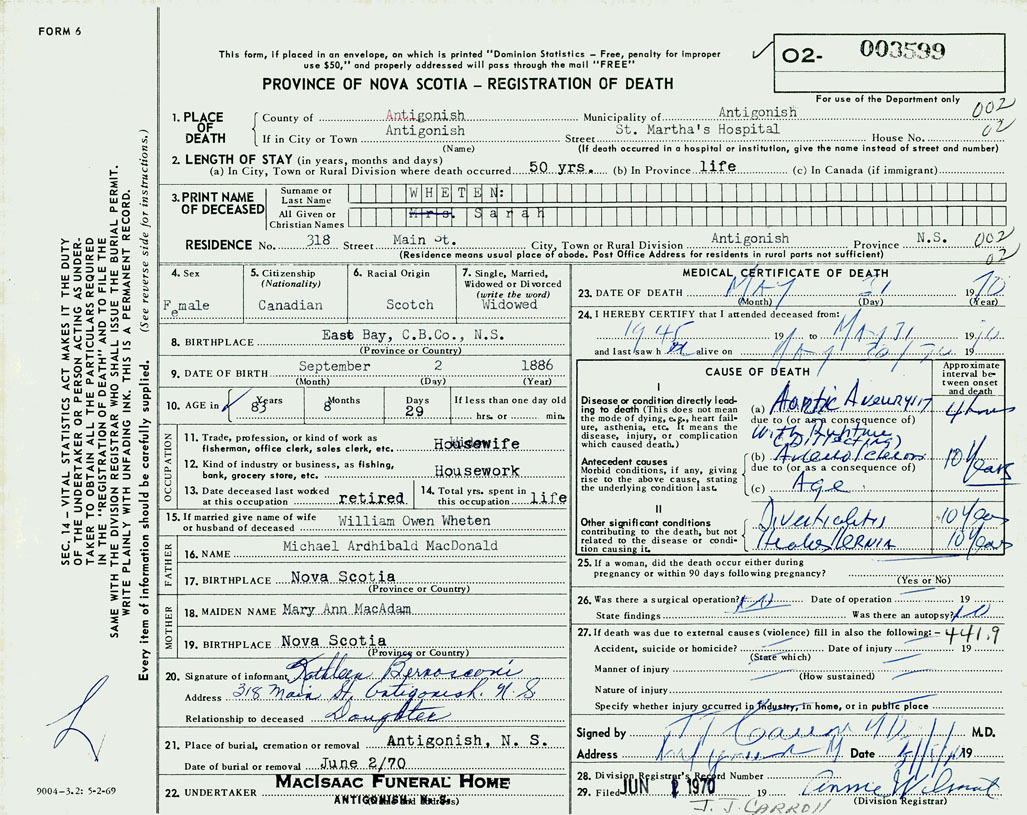 FORM 6
This form, if placed in an envelope, on which is printed "Dominion Statistics – Free, penalty for improper
use $50," and properly addressed will pass through the mail "FREE"
PROVINCE OF NOVA SCOTIA – REGISTRATION OF DEATH
O2- 003599
For use of the Department only
002
02
1. PLACE OF DEATH
County of Antigonish Municipality of Antigonish
If in City or Town Antigonish Street St. Martha's Hospital House No.
(Name) (If death occurred in a hospital or institution, give the name instead of street and number)
2. LENGTH OF STAY (in years, months and days)
(a) In City, Town or Rural Division where death occurred 50 yrs. (b) In Province life (c) In Canada (if immigrant)
3. PRINT NAME OF DECEASED
Surname or Last Name WHETEN:
All Given or Christian Names Mrs. Sarah
RESIDENCE No. 318 Street Main St. City, Town or Rural Division Antigonish Province N.S. 002
(Residence means usual place of abode. Post Office Address for residents in rural parts not sufficient) 02
SEC. 14 – VITAL STATISTICS ACT MAKES IT THE DUTY
OF THE UNDERTAKER OR PERSON ACTING AS UNDER-
TAKER TO OBTAIN ALL THE PARTICULARS REQUIRED
IN THE "REGISTRATION OF DEATH" AND TO FILE THE
SAME WITH THE DIVISION REGISTRAR WHO SHALL ISSUE THE BURIAL PERMIT.
WRITE PLAINLY WITH UNFADING INK. THIS IS A PERMANENT RECORD.
Every item of information should be carefully supplied. (See reverse side for instructions.)
4. Sex
Female
5. Citizenship
(Nationality)
Canadian
6. Racial Origin
Scotch
7. Single, Married,
Widowed or Divorced
(write the word)
Widowed
8. BIRTHPLACE East Bay, C.B.Co., N.S.
(Province or Country)
9. DATE OF BIRTH September 2 1886
(Month) (Day) (Year)
10. AGE in Years 83 Months 8 Days 29 If less than one day old
hrs. or min.
OCCUPATION
11. Trade, profession, or kind of work as
fisherman, office clerk, sales clerk, etc. Housewife
12. Kind of industry or business, as fishing,
bank, grocery store, etc. Housework
13. Date deceased last worked
at this occupation retired
14. Total yrs. spent in
this occupation life
15. If married give name of wife
or husband of deceased William Owen Wheten
FATHER
16. NAME Michael Ardhibald MacDonald
17. BIRTHPLACE Nova Scotia
(Province or Country)
MOTHER
18. MAIDEN NAME Mary Ann MacAdam
19. BIRTHPLACE Nova Scotia
(Province or Country)
20. Signature of informant Kathleen Bernasconi
Address 318 Main St. Antigonish. N.S
Relationship to deceased Daughter
21. Place of burial, cremation or removal Antigonish, N. S.
Date of burial or removal June 2/70
22. UNDERTAKER MacIsaac Funeral Home
ANTIGONISH N.S.
9004–3.2: 5-2-69
MEDICAL CERTIFICATE OF DEATH
23. DATE OF DEATH MAY 31 1970
(Month) (Day) (Year)
24. I HEREBY CERTIFY that I attended deceased from:
1945 19 to MAY 31 1970
and last saw h er alive on MAY 30/70 19
CAUSE OF DEATH
Approximate
interval be-
tween onset
and death
I
Disease or condition directly lead-
ing to death (This does not mean
the mode of dying, e.g., heart fail-
ure, asthenia, etc. It means the
disease, injury, or complication
which caused death.)
(a) Aortic Aneurysm 4 hours
due to (or as a consequence of)
with Rupture
(Dissecting)
Antecedent causes
Morbid conditions, if any, giving
rise to the above cause, stating
the underlying condition last.
(b) 10 Years
due to (or as a consequence of)
(c) Age
II
Other significant conditions
contributing to the death, but not
related to the disease or condi-
tion causing it.
Diverticulitis 10 Years
Hiatus Hernia 10 Years
25. If a woman, did the death occur either during
pregnancy or within 90 days following pregnancy?
(Yes or No)
26. Was there a surgical operation? NO Date of operation 19
State findings Was there an autopsy? NO
27. If death was due to external causes (violence) fill in also the following: – 441.9
Accident, suicide or homicide? Date of injury 19
(State which)
Manner of injury
(How sustained)
Nature of injury
Specify whether injury occurred in industry, in home, or in public place
Signed by J J Carroll M.D. M.D.
Address Date 19
28. Division Registrar's Record Number
29. Filed JUN 1970 19 Annie Wilmot
(Division Registrar)
J. J. CARROLL